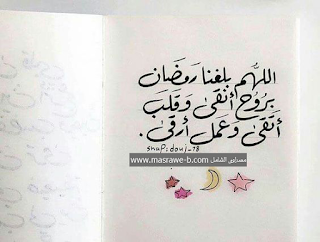 اللهُم بلغنا رَمَضَان
بِرُوُح أنقىٰ وَ قَلب
أتقَىٰ وَعَمل أرقىٰ .
www.masrawe-b.com مصراوى الشامل